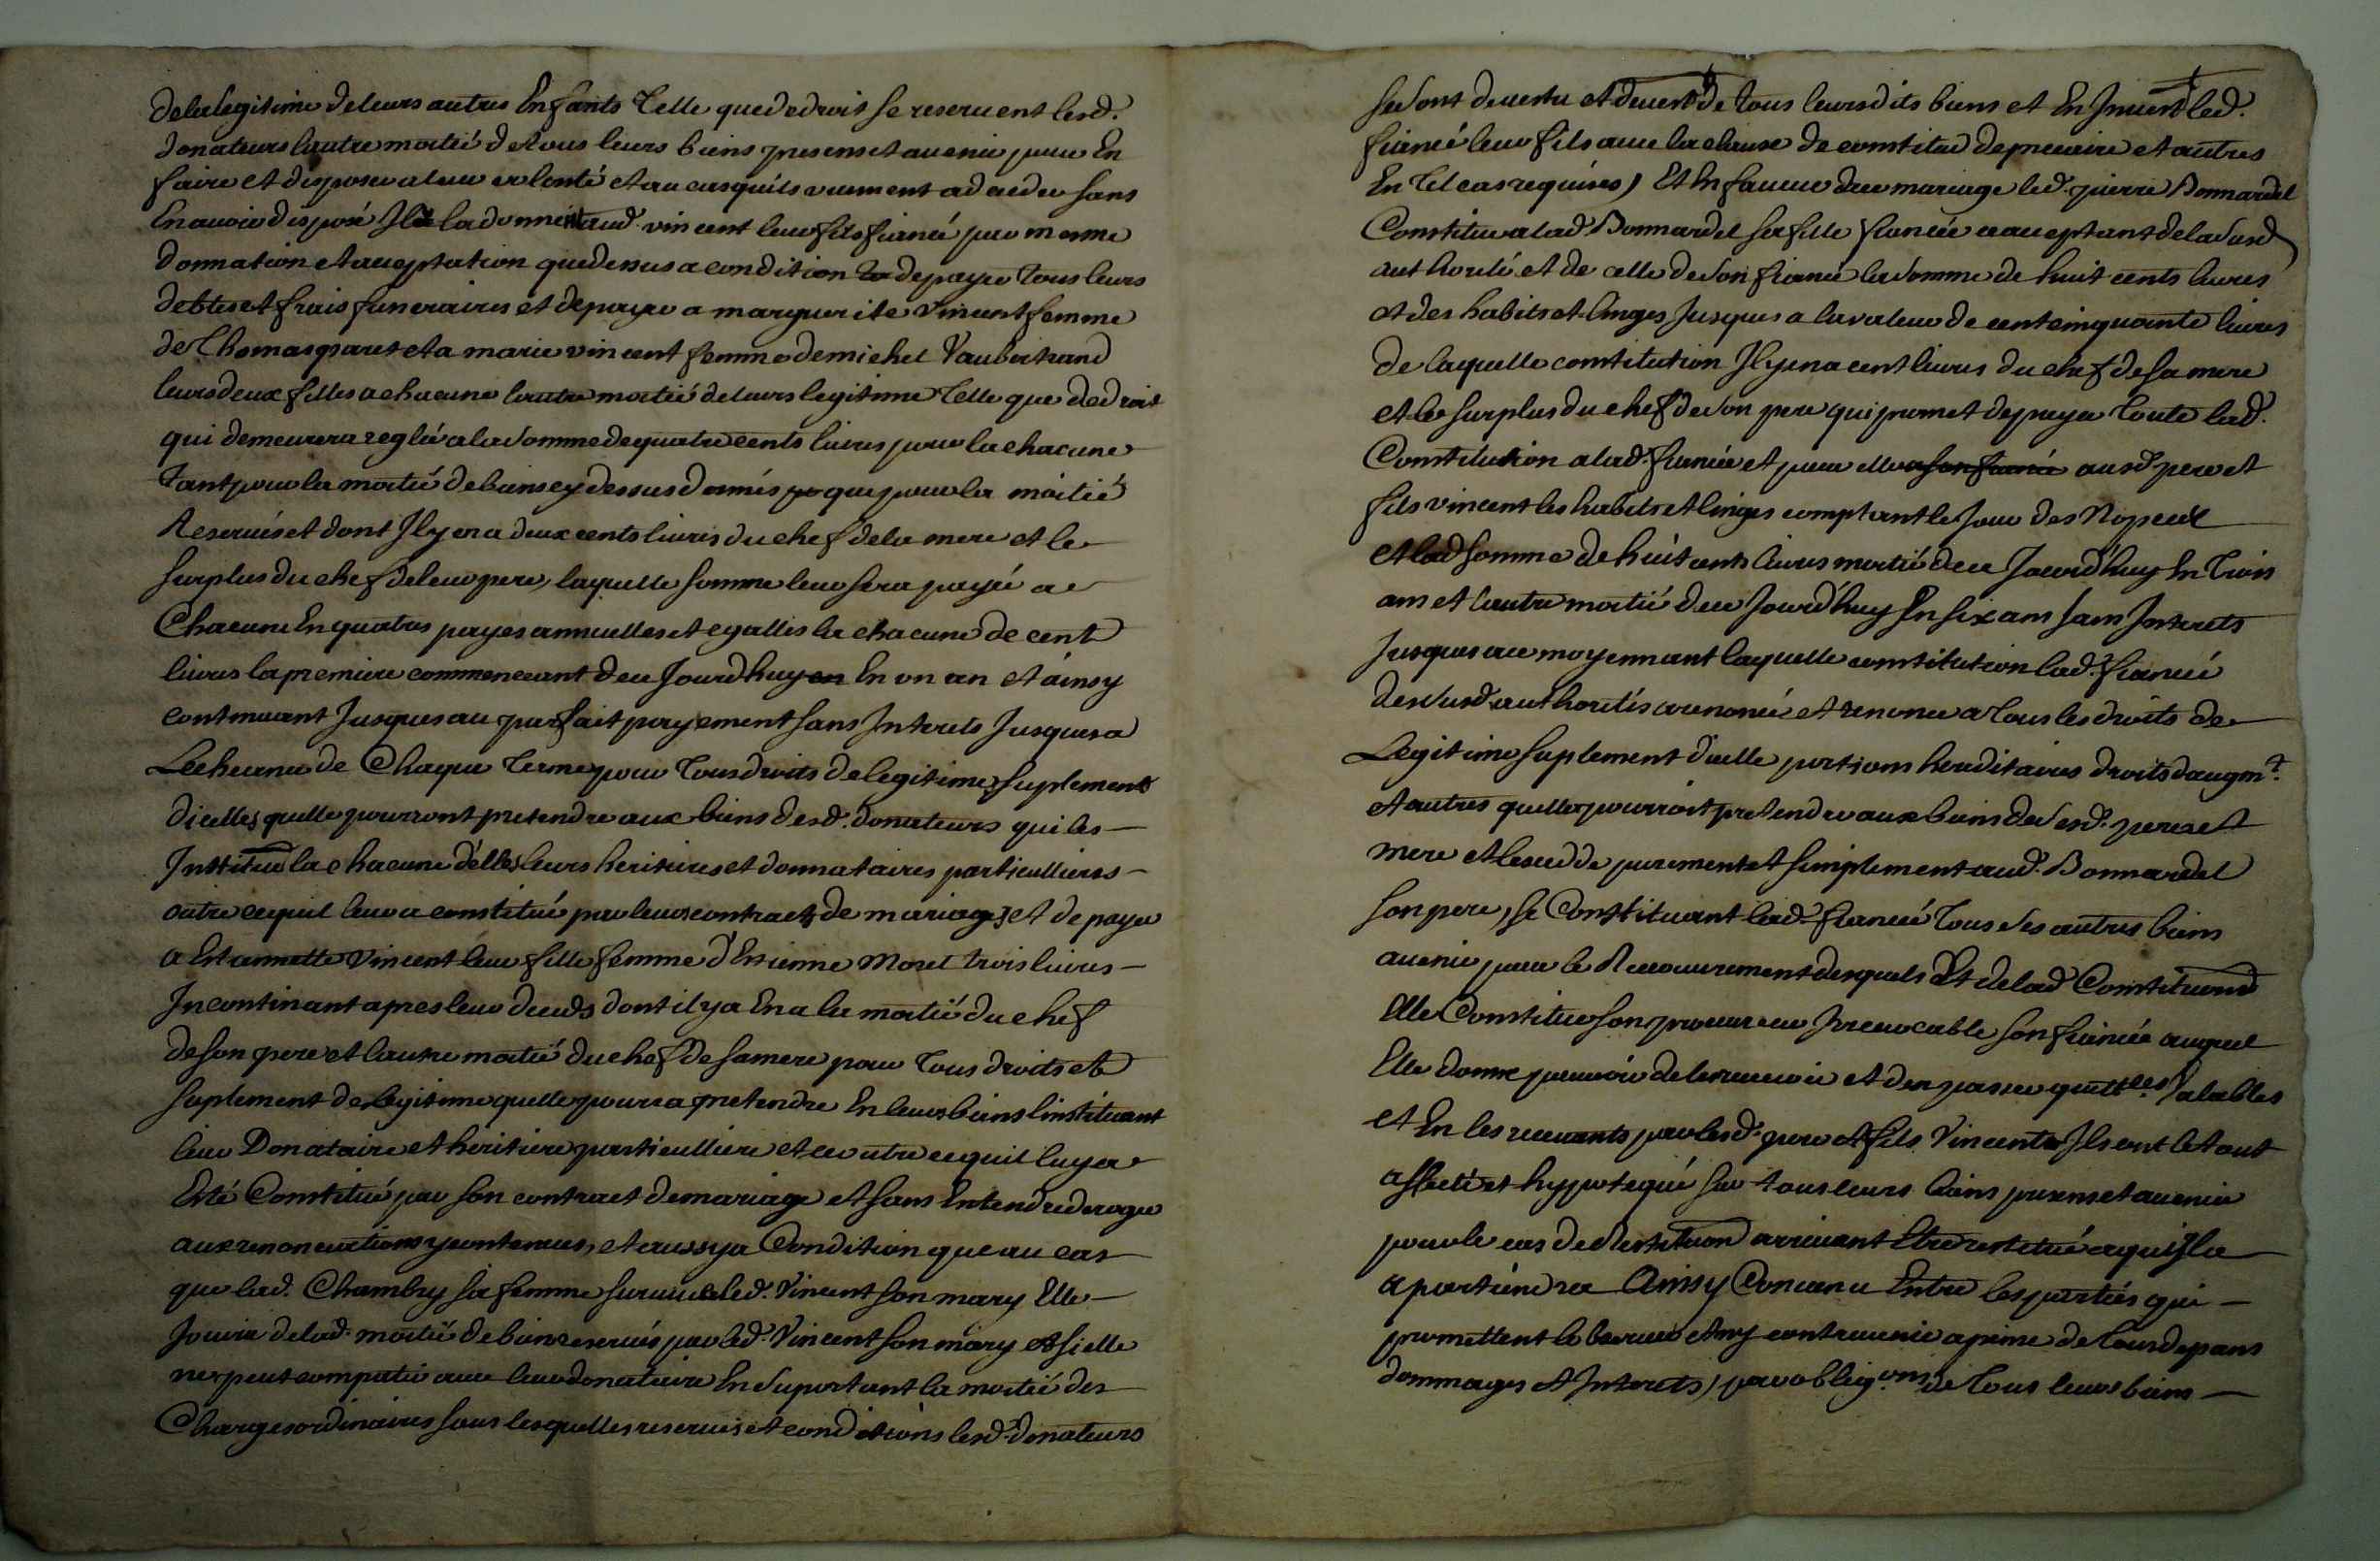 de la legitime de leurs autres Enfants Telle que de droit se reservent lesd.
donateurs lautre moitié de tous leurs biens presens et avenir pour En
faire et disposer a leur volonté et au cas quils vinssent a deceder sans
En avoir disposé Ils la donnent aud. vincent leur fils fiancé par mesme
donnation et acceptation que dessus a condition de payer Tous leurs
debtes et frais funeraires et de payer a marguerite vincent femme
de Thomas paret et a marie vincent femme de michel Vaubertrand
leurs deux filles a chacune lautre moitié de leurs legitime Telle que de droit
qui demeurera reglée a la somme de quatre cents livres pour la chacune
Tant pour la moitié de biens cy dessus donnés que pour la moitié
Reservés et dont Il y en a deux cents livres du chef de la mere et le
surplus du chef de leur pere, laquelle somme leur sera payée a
Chacune En quatres payes annuelles et egalles la chacune de cent
livres la premiere commenceant de ce Jourdhuy en En un an et ainsy
continuant Jusques au parfait payement sans Interets Jusques a
Lecheance de Chaque Terme pour Tous droits de legitimes suplements
dicelles quelle pourront pretendre aux biens desd. donateurs qui les
Institue la chacune d'elles leurs heritieres et donnataires particullieres
outre ce quil leur a constitué par leurs contracts de mariages et de payer
a Estiennette vincent leur fille femme d'Estienne Morel trois livres
Incontinant apres leur deceds dont il y a En a la moitié du chef
de son pere et lautre moitié du chef de sa mere pour Tous droits et
suplement de legitime quelle pourra pretendre En leurs biens linstituant
leur Donataire et heritiere particulliere et ce outre ce quil luy a
Esté Constitué par son contract de mariage et sans Entendre deroger
aux renonciations y contenues, et aussy a Condition que au cas
que lad. Chambry sa femme survive led. Vincent son mary Elle
Jouira de lad. moitié de biens reservés par led. Vincent son mary et si elle
ne peut compatir avec leur donataire En suportant la moitié des
Charges ordinaires sous lesquelles reserves et conditions lesd. donateurs
se sont devestu et devest de Tous leursdits biens et En Invest led.
fiancé leur fils avec la clause de constitut de precaire et autres
En Tel cas requises) Et En faveur du ce mariage led. pierre Bonnardel
Constitue a lad. Bonnardel sa fille fiancée acceptant de la susd.
authorité et de celle de son fiancé la somme de huit cents livres
et des habits et linges Jusques a la valeur de cent cinquante livres
de laquelle constitution Il y en a cent livres du chef de sa mere
et le surplus du chef de son pere qui promet de payer Toute lad.
Constitution a lad. fiancée et pour elle a son fiancé ausd. pere et
fils vincent les habits et linges comptant le Jour des Nopces
et lad. somme de huit cents livres moitié de ce Jourd'huy En Trois
ans et lautre moitié de ce Jourd'huy En six ans sans Interets
Jusques a ce moyennant laquelle constitution lad. fiancée
des susd. authorités a renoncé et renonce a Tous les droits de
Legitime suplement dicelle portions hereditaires droits daugmt.
et autres quelle pourroit pretendre aux biens de sesd. pere et
mere et les cedde purement et simplement aud. Bonnardel
son pere, se Constituant lad. fiancée Tous ses autres biens
avenir pour le Recouvrement desquels Et de lad. Constitution
Elle Constitue son procureur Irrevocable son fiancé auquel
Elle donne pouvoir de les recevoir et den passer quittces. Valables
et En les recevants par lesd. pere et fils Vincents Ils ont le tout
affecté et hypotequé sur tous leurs biens presens et avenir
pour le cas de Restitution arrivant Etre restitué a qui Il
apartiendra Ainsy Convenu Entre les parties qui
promettent lobserver et ny contrevenir a peine de Tous depans
dommages et Interets) par obligons. de Tous leurs biens